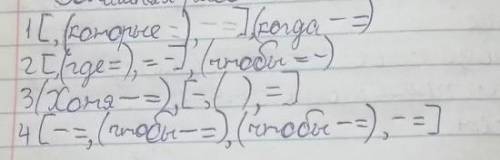 1 [, (которые =), - =], (когда - =)
2 [, (где =), = -], (чтобы = -)
3 (Хотя - =), [-, ( ), =]
4 [- =, (чтобы - =), (чтобы - =), - =]